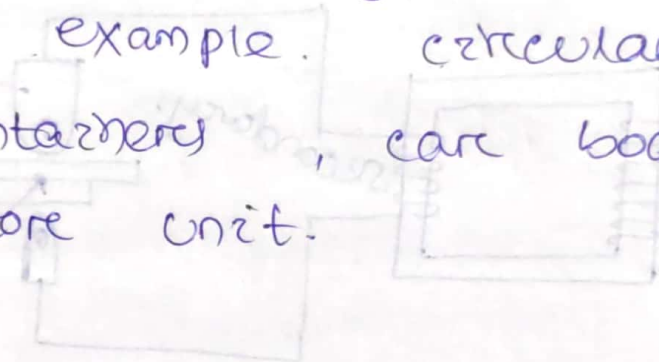 example. circula
tainers, car bo
ore unit.